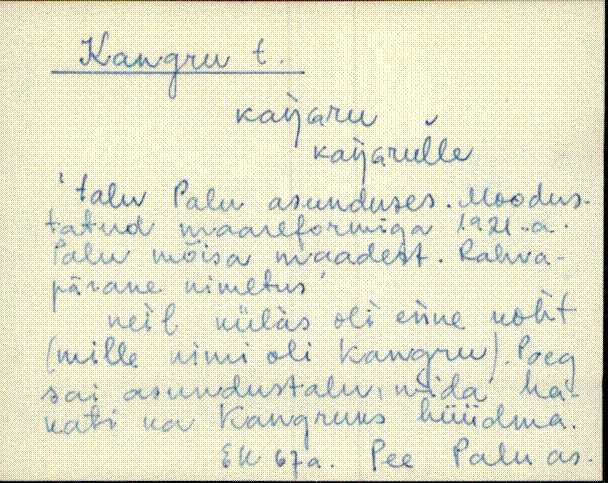 Kangru t.
kaŋGru
kaŋGrulle
'talu Palu asunduses. Moodus-
tatud maareformiga 1921. a.
Palu mõisa maadest. Rahva-
pärane nimetus'
neil küläs oli enne koht
(mille nimi oli Kangru). Poeg
sai asundustalu, mida ha-
kati ka Kangruks hüüdma.
EK 67a. Pee Palu as.